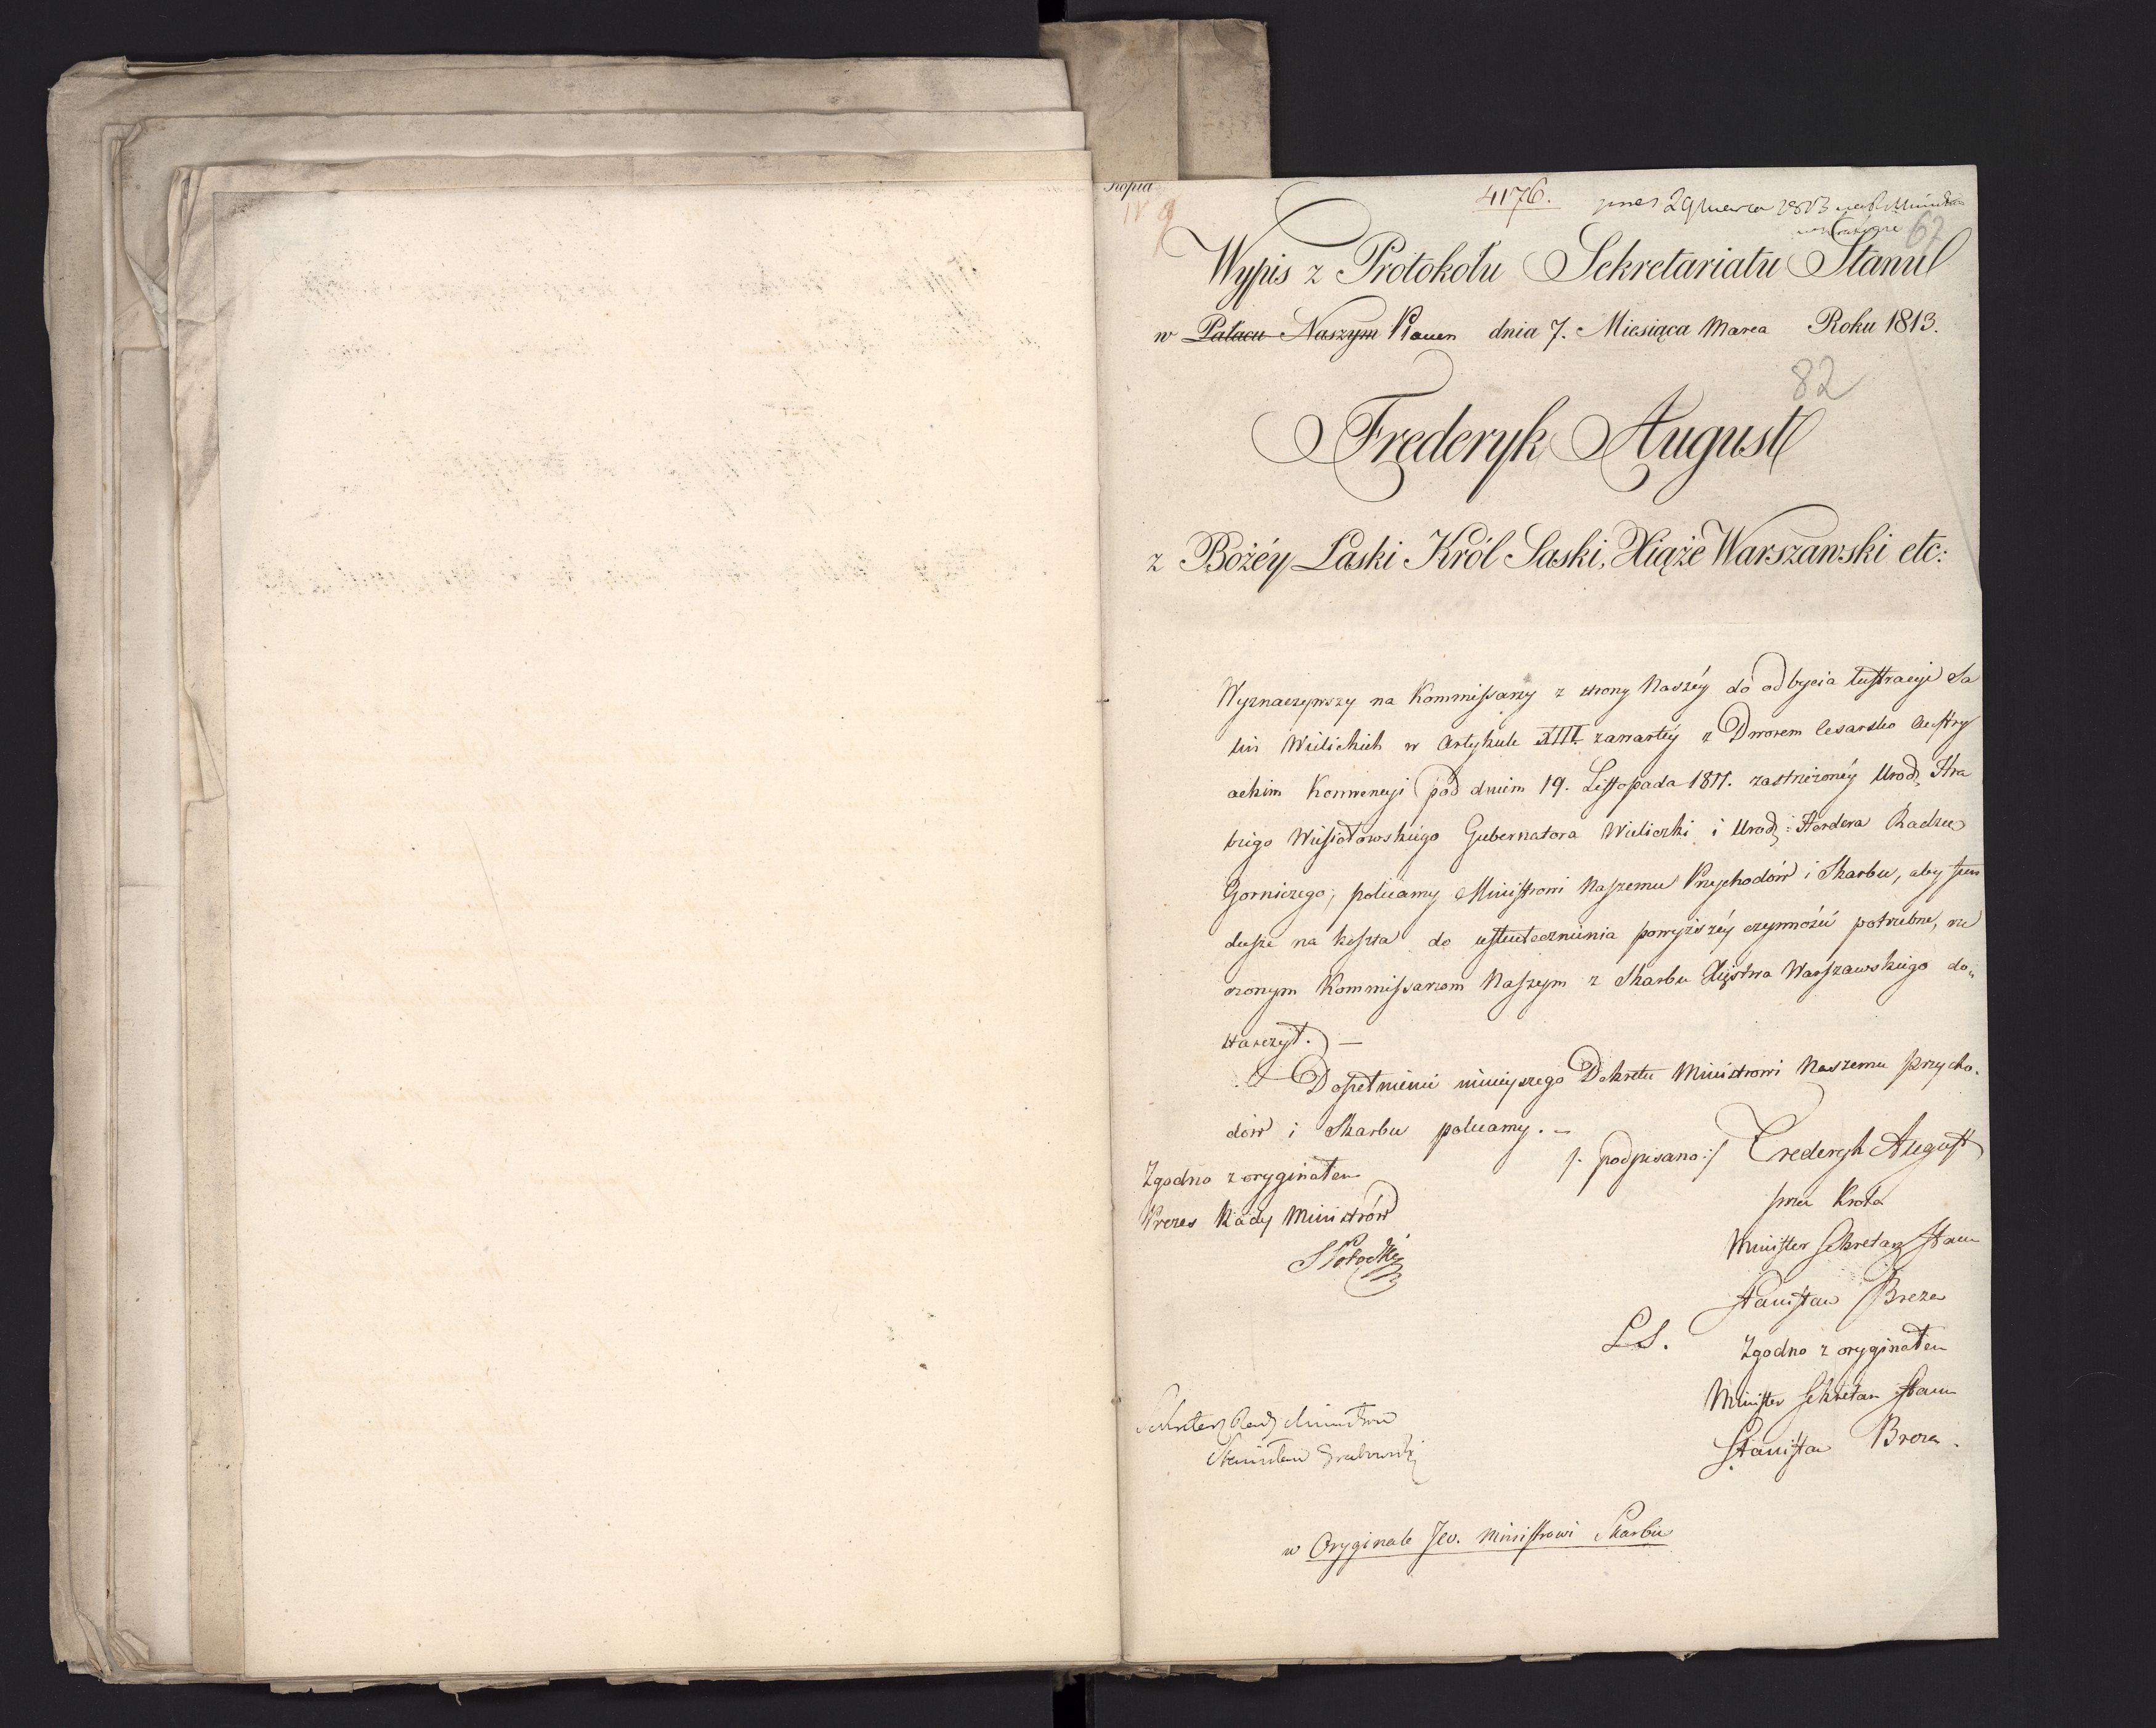 Kopia
4176.
pres 29 Marca 1813
67
Wypis z Protokołu Sekretariatu Stanu
w Pałacu Naszym Plauen dnia 7. Miesiąca Marca Roku 1813.
82
Frederyk August
z Bożéy Łaski Król Saski, Xiąże Warszawski etc:
Wyznaczywszy na Kommissarzy z strony Naszéy do odbycia lustracyi Sa
lin Wielickich w Artykule XIII. zawartéy z Dworem Cesarsko Austry
ackim Konwencyi pod dniem 19. Listopada 1811. zastrzeżonéy Urodz. Hra
biego Wiesiołowskiego Gubernatora Wieliczki i Urodz: Herdera Radzcę
Gorniczego, polecamy Ministrowi Naszemu Przychodów i Skarbu, aby fun
dusze na koszta do uskutecznienia powyższéy czynności potrzebne, rze
czonym Kommissarzom Naszym z Skarbu Xięstwa Warszawskiego do„
starczył. —
Dopełnienie nінieyszego Dekretu Ministrowi Naszemu Przycho„
dów i Skarbu polecamy. —
/: podpisano :/ Frederyk August
przez Króla
Minister Sekretarz Stanu
Stanisław Breza
L.S.
Zgodno z oryginałem
Minister Sekretarz Stanu
Stanisław Breza.
Zgodno z oryginałem
Prezes Rady Ministrów
S Potocki
Sekretarz Rady Ministrów
Stanisław Grabowski
w Oryginale JW. Ministrowi Skarbu